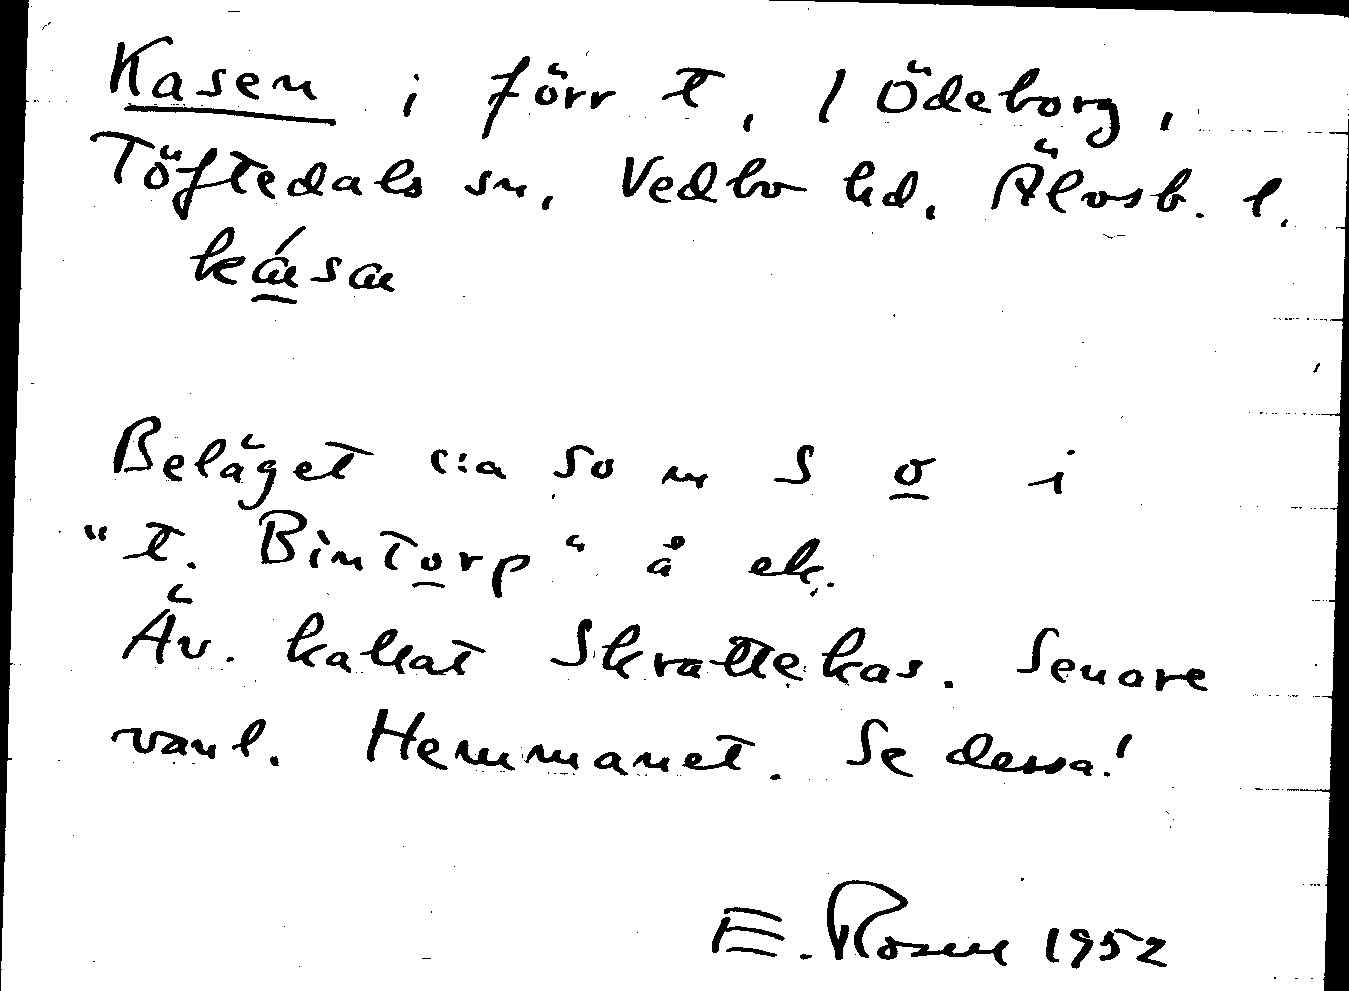 Kasen i förr t, 1 Ödeborg,
Töftedals sn, Vedbo hd. Älvsb. l.
Beläget c:a 50 m S o i
"t. Bintorp" å ek.
Äv. kallat Skrattekas. Senare
vanl. Hemmanet. Se dessa!
E. Rosen 1952